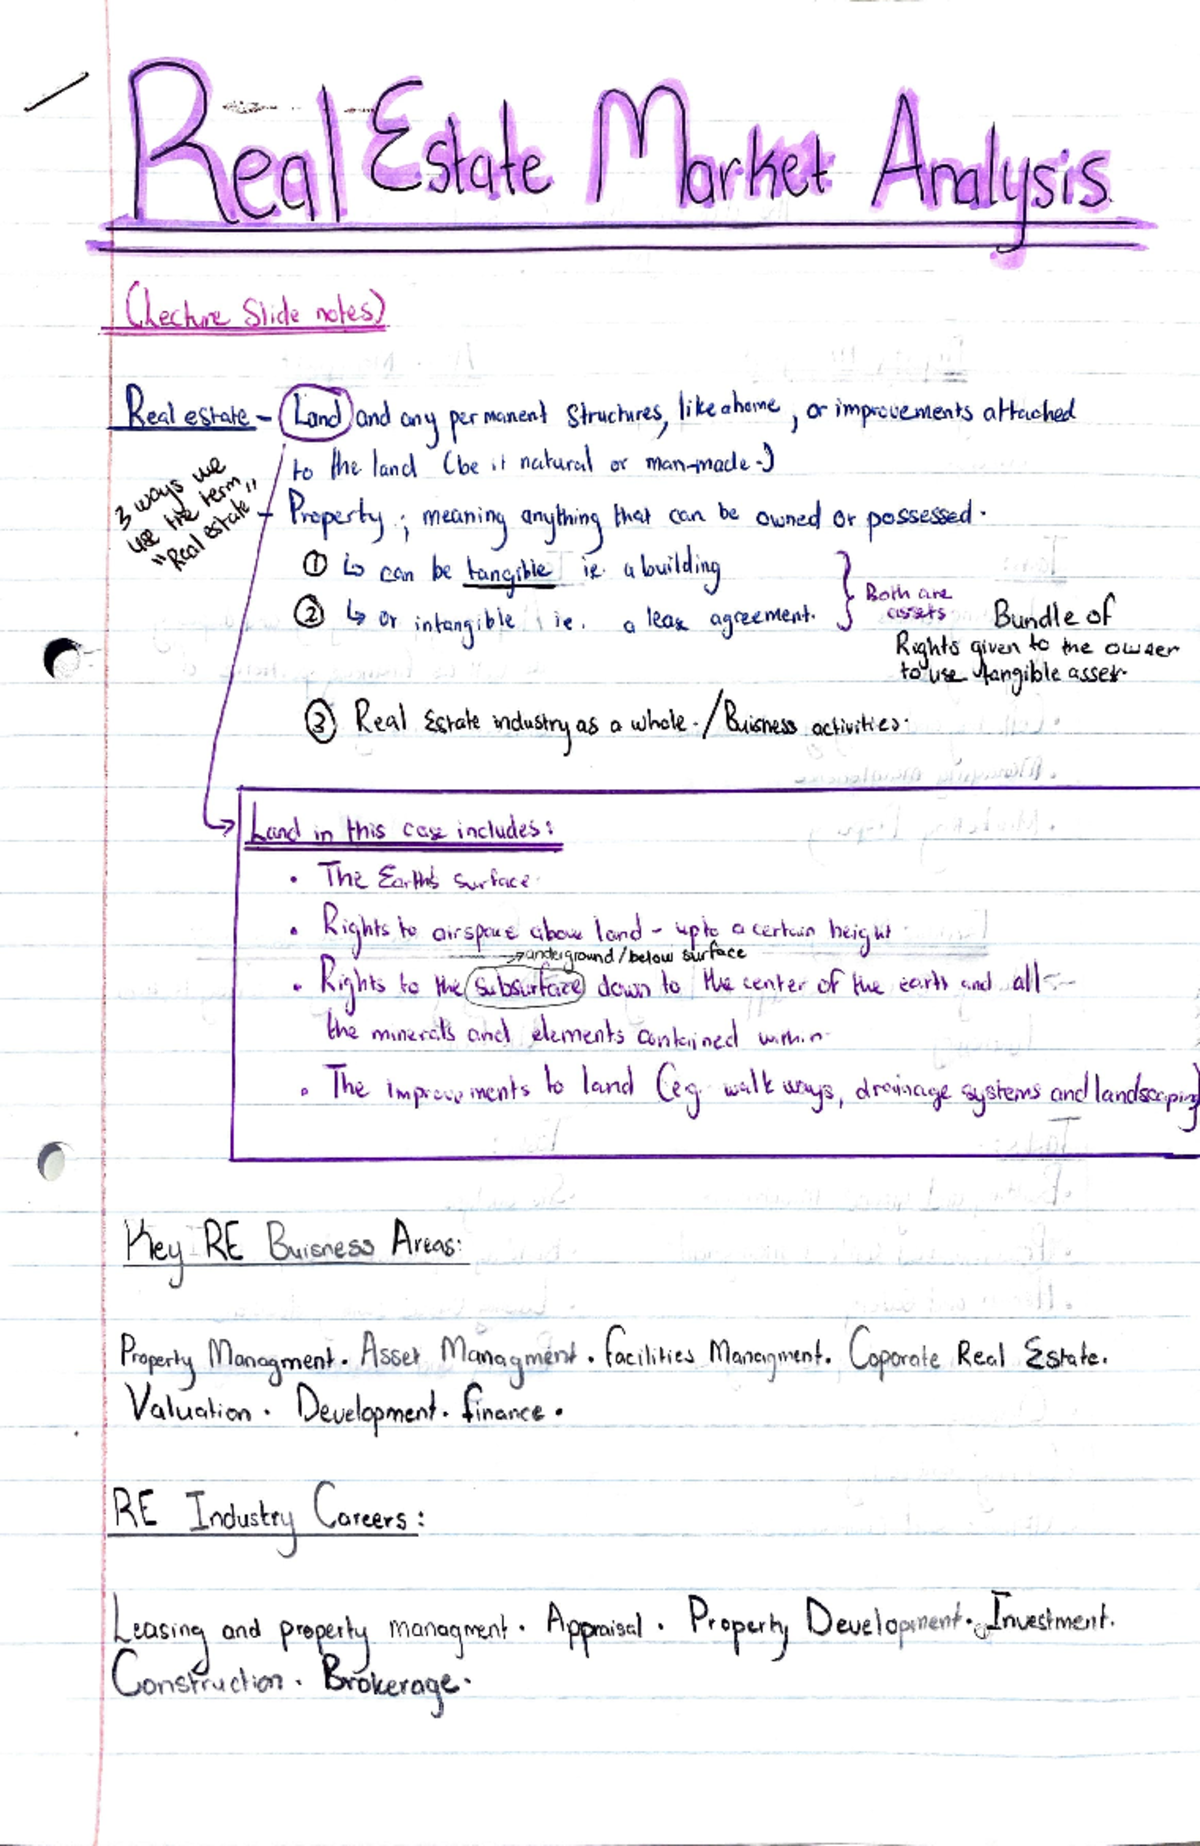 Real Estate Market Analysis.
(Lecture Slide notes)
Real estate - Land and any permanent structures, like a home, or improvements attached
to the land (be it natural or man-made.)
3 ways we
use the term
"Real estate"
- Property ; meaning anything that can be owned or possessed.
① ↳ can be tangible ie. a building
② ↳ or intangible ie. a lease agreement.
Both are
assets
Bundle of
Rights given to the owner
to use tangible asset.
③ Real Estate industry as a whole. / Buisness activities.
Land in this case includes:
• The Earth's surface.
• Rights to airspace above land - upto a certain height
→ underground / below surface
• Rights to the subsurface down to the center of the earth and all
the minerals and elements contained within.
• The improvements to land (eg. walkways, drainage systems and landscaping)
Key RE Buisness Areas:
Property Managment. Asset Managment. Facilities Managment. Coporate Real Estate.
Valuation. Development. finance.
RE Industry Careers:
Leasing and property managment. Appraisal. Property Development. Investment.
Construction. Brokerage.